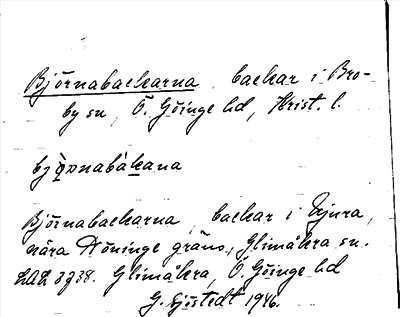 Björnabackarna, backar i Bro-
by sn, Ö. Göinge hd, Krist. l.
bjö̀ṇnabàkana
Björnabackarna, backar i Tjura,
nära Höninge gräns, Glimåkra sn.
LAL 3938. Glimåkra, Ö. Göinge hd
G. Sjöstedt 1946.